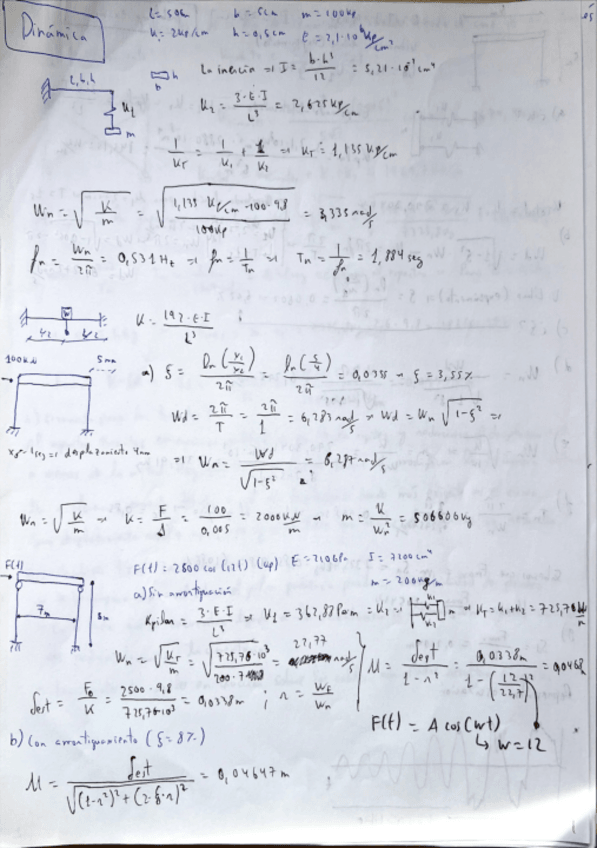 Dinámica
L=50cm b=5cm m=100kg
K=2kp/cm h=0,5cm E=2,1·10⁶ kp/cm²
L, b, h
K₂
m
h
b
La inercia ⇒ I = b·h³/12 = 5,21·10⁻² cm⁴
K₁ = 3·E·I/L³ = 2,625 kp/cm
1/K_T = 1/K₁ + 1/K₂ ⇒ K_T = 1,135 kp/cm
Wn = √(K/m) = √(1,135 kp/cm·100·9,8/100kg) = 3,335 rad/s
fn = Wn/2π = 0,531 Hz ⇒ fn = 1/Tn ⇒ Tn = 1/fn = 1,884 seg
K = 192·E·I/L³
L/2 L/2
100KN 5mm
a) ξ = Ln(x₁/x₂)/2π = Ln(5/4)/2π = 0,0355 → ξ = 3,55%
Wd = 2π/T = 2π/1 = 6,283 rad/s → Wd = Wn √(1-ξ²) ⇒
⇒ Wn = Wd/√(1-ξ²) = 6,287 rad/s
desplazamiento 4mm
Wn = √(K/m) → K = F/δ = 100/0,005 = 20000 KN/m → m = K/Wn² = 506600 kg
F(t) = 2600 cos(12t) (kp) E=210GPa I=7200cm⁴
F(t)
7m
a) Sin amortiguación
K pilar = 3·E·I/L³ ⇒ K₁ = 362,88 = K₂ → K_T = K₁+K₂ = 725,76
Wn = √(K_T/m) = √(725,76·10³/200·7) = 22,77 rad/s
U = δest/1-r² = 0,0338m/1-(12/22,7)² = 0,0468
δest = F₀/K = 2500·9,8/725,76·10³ = 0,0338m ; r = W_F/Wn
F(t) = A cos(wt)
↳ w=12
b) Con amortiguamiento (ξ=8%)
U = δest/√((1-r²)²+(2·ξ·r)²) = 0,04647 m